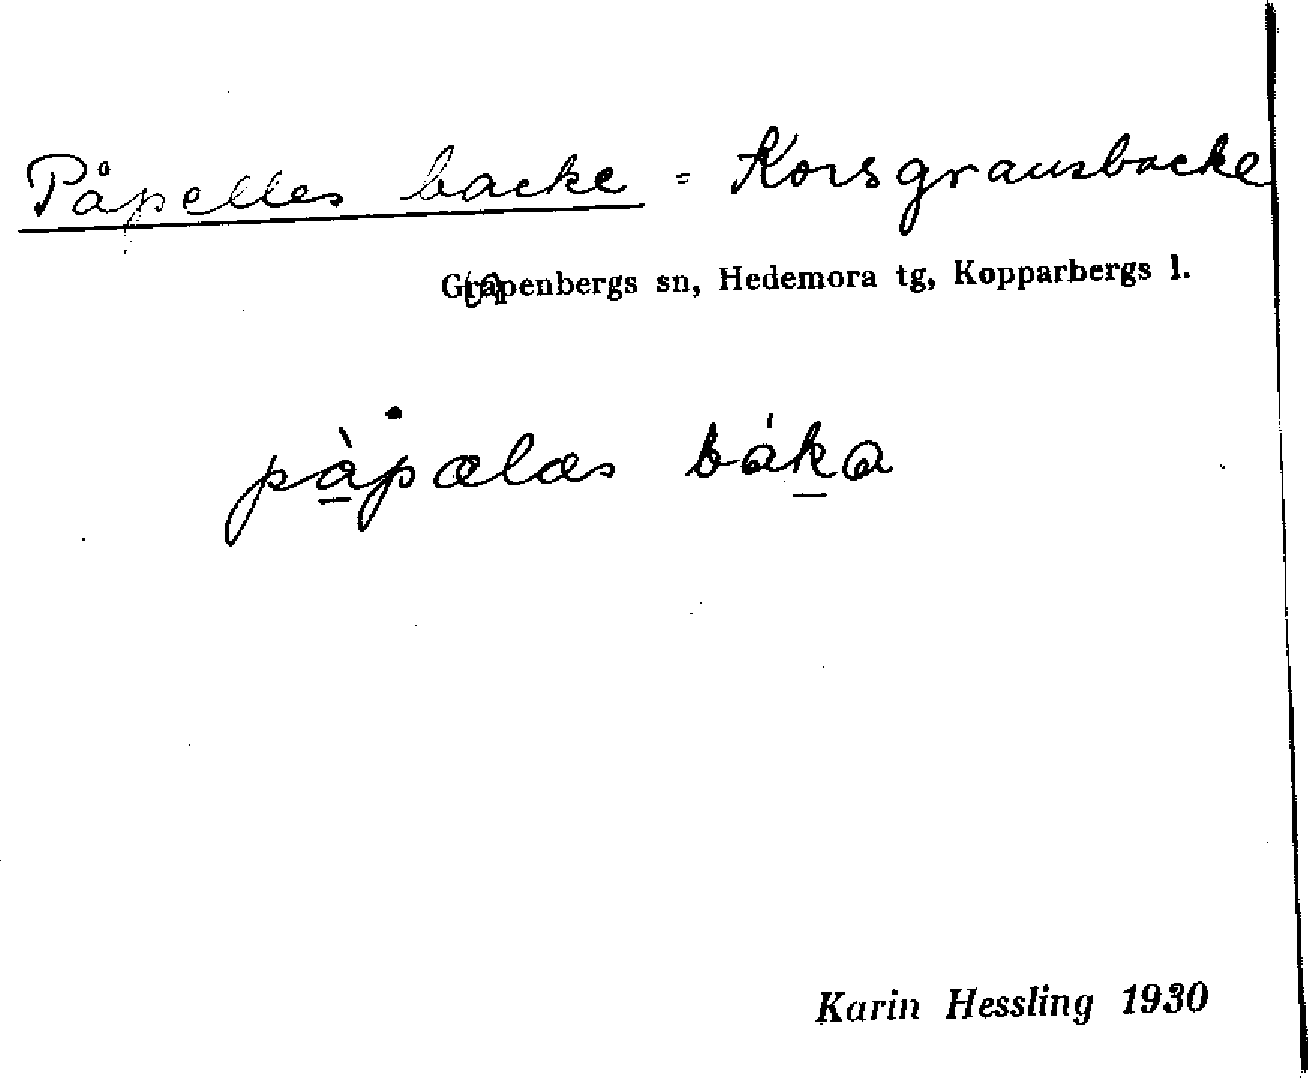 Påpelles backe = Korsgransbacke
Garpenbergs sn, Hedemora tg, Kopparbergs l.
pàpælæs báka
Karin Hessling 1930